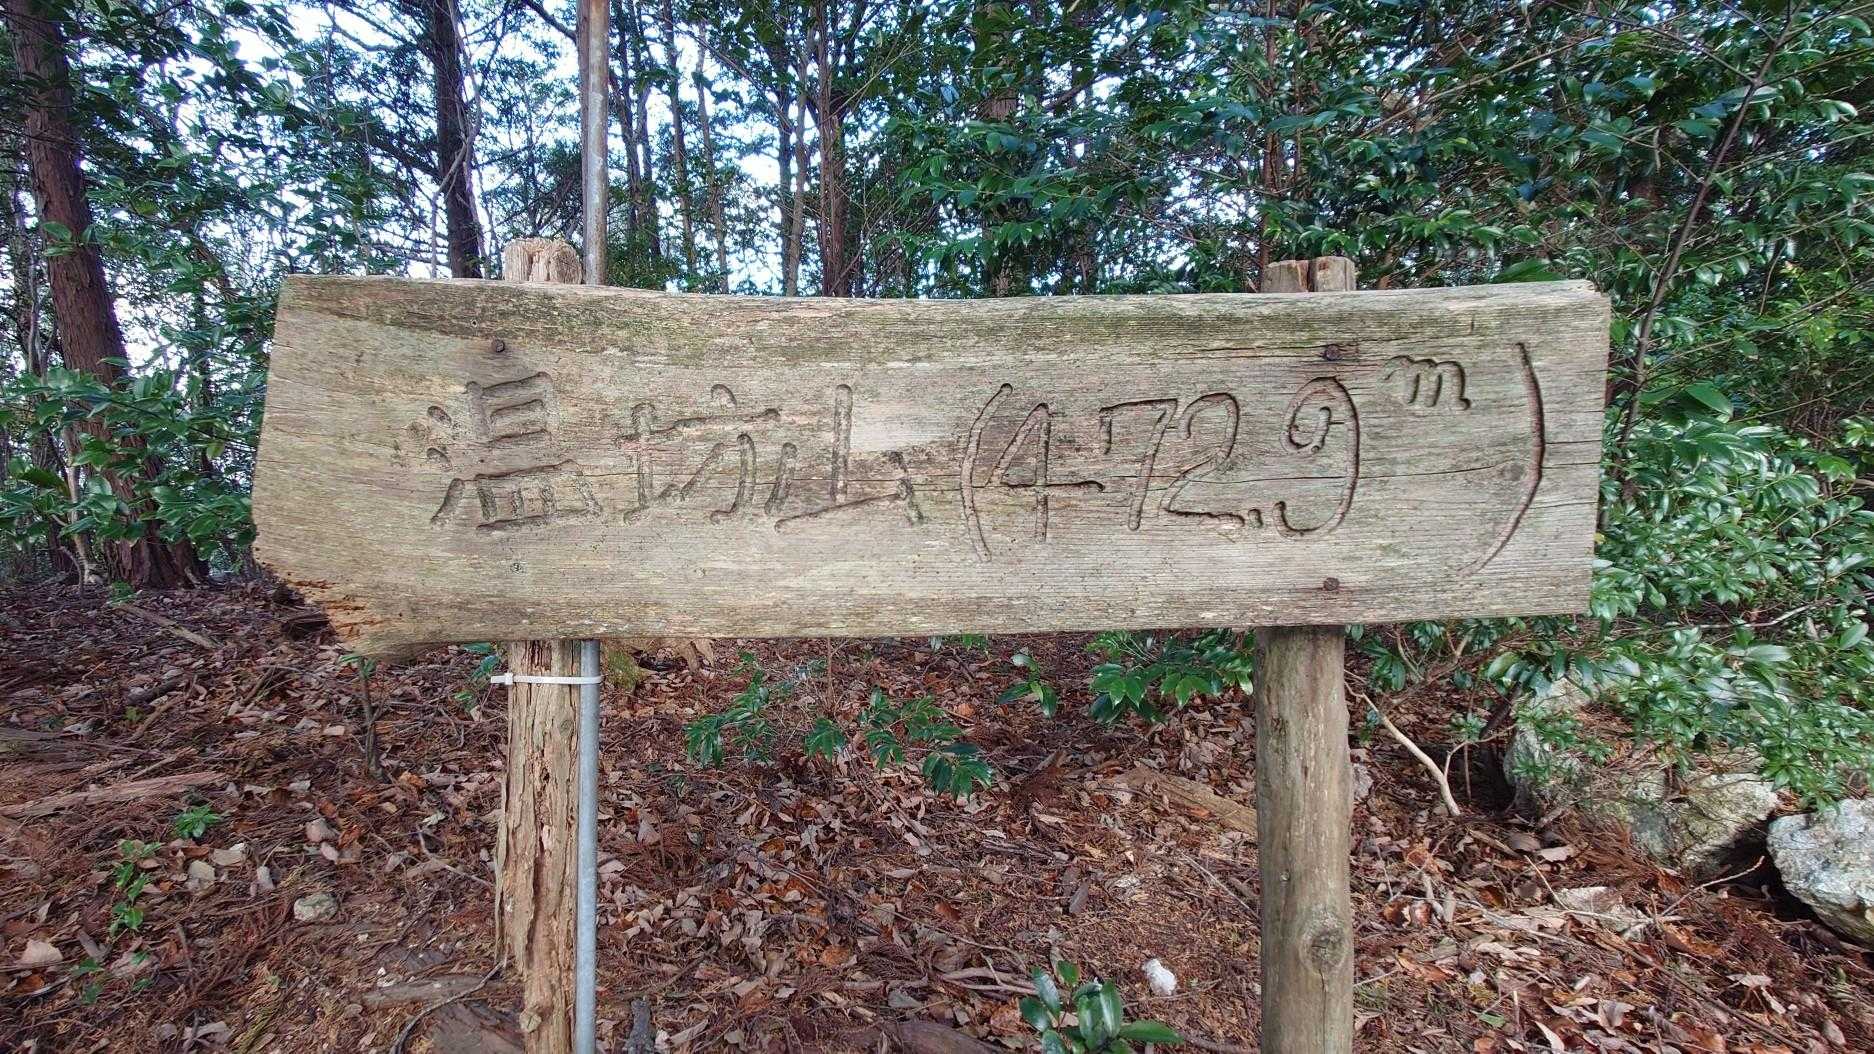 温坊山(472.9m)